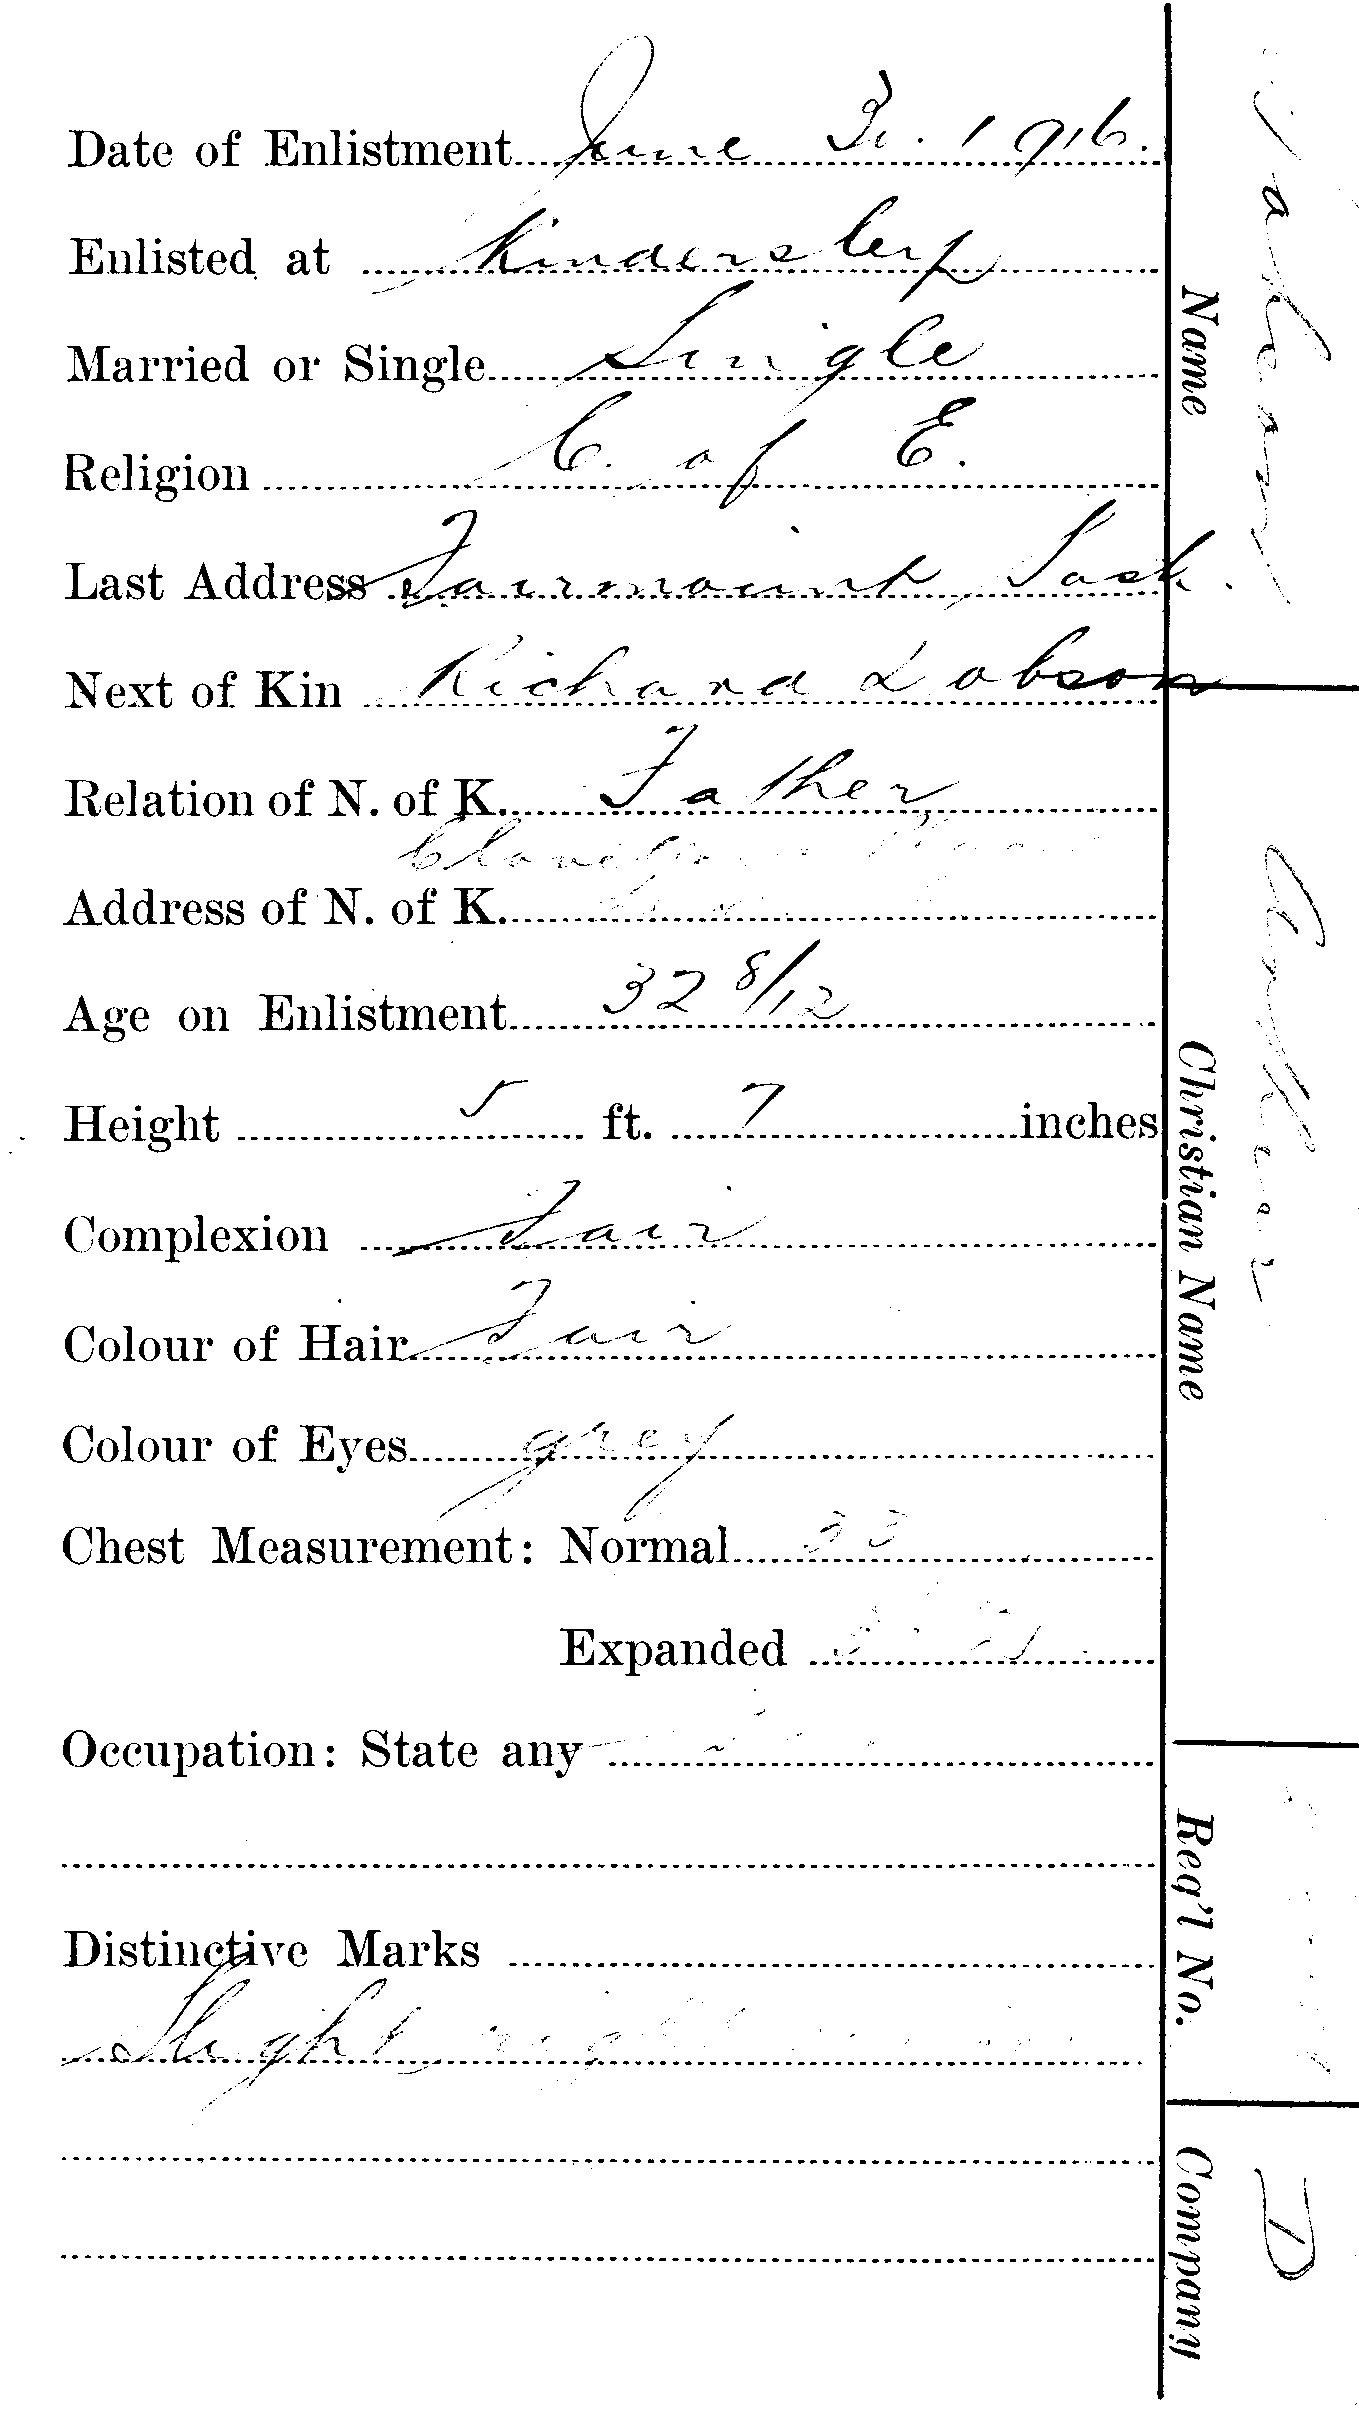 Date of Enlistment June 30. 1916.
Enlisted at Kindersley
Married or Single Single
Religion C. of E.
Last Address Fairmount, Sask.
Next of Kin Richard Lobson
Relation of N. of K. Father
Address of N. of K.
Age on Enlistment 32 8/12
Height 5 ft. 7 inches
Complexion Fair
Colour of Hair Fair
Colour of Eyes grey
Chest Measurement: Normal 33
Expanded
Occupation: State any
Distinctive Marks
Slight
Name
Christian Name Arthur
Reg'l No.
Company D